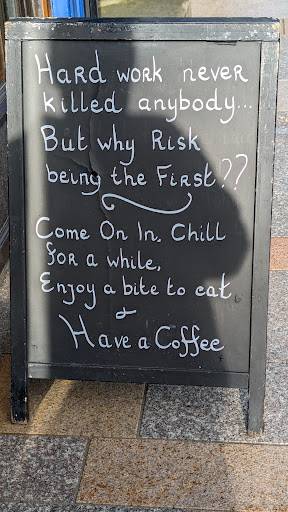 Hard work never
killed anybody...
But why Risk
being the First??
Come On In. Chill
for a while,
Enjoy a bite to eat
&
Have a Coffee